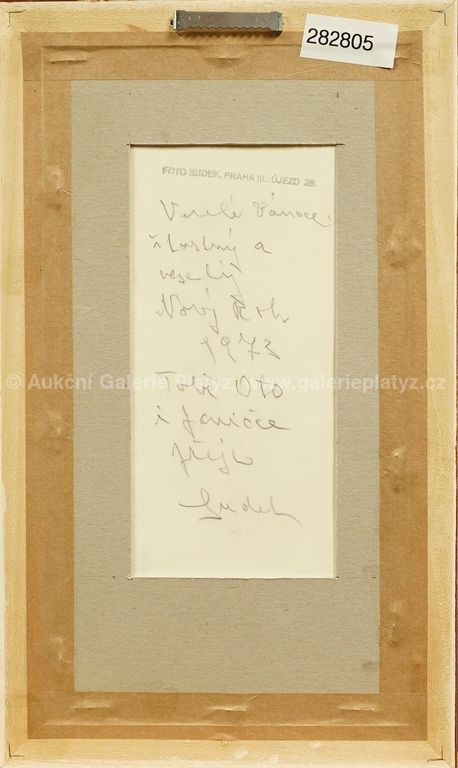 282805
FOTO SUDEK, PRAHA III., ÚJEZD 28.
Veselé Vánoce
šťastný a
veselý
Nový Rok
1973
Tobě Oto
i Janičce
přeje
Sudek
© Aukční Galerie Platýz / www.galerieplatyz.cz